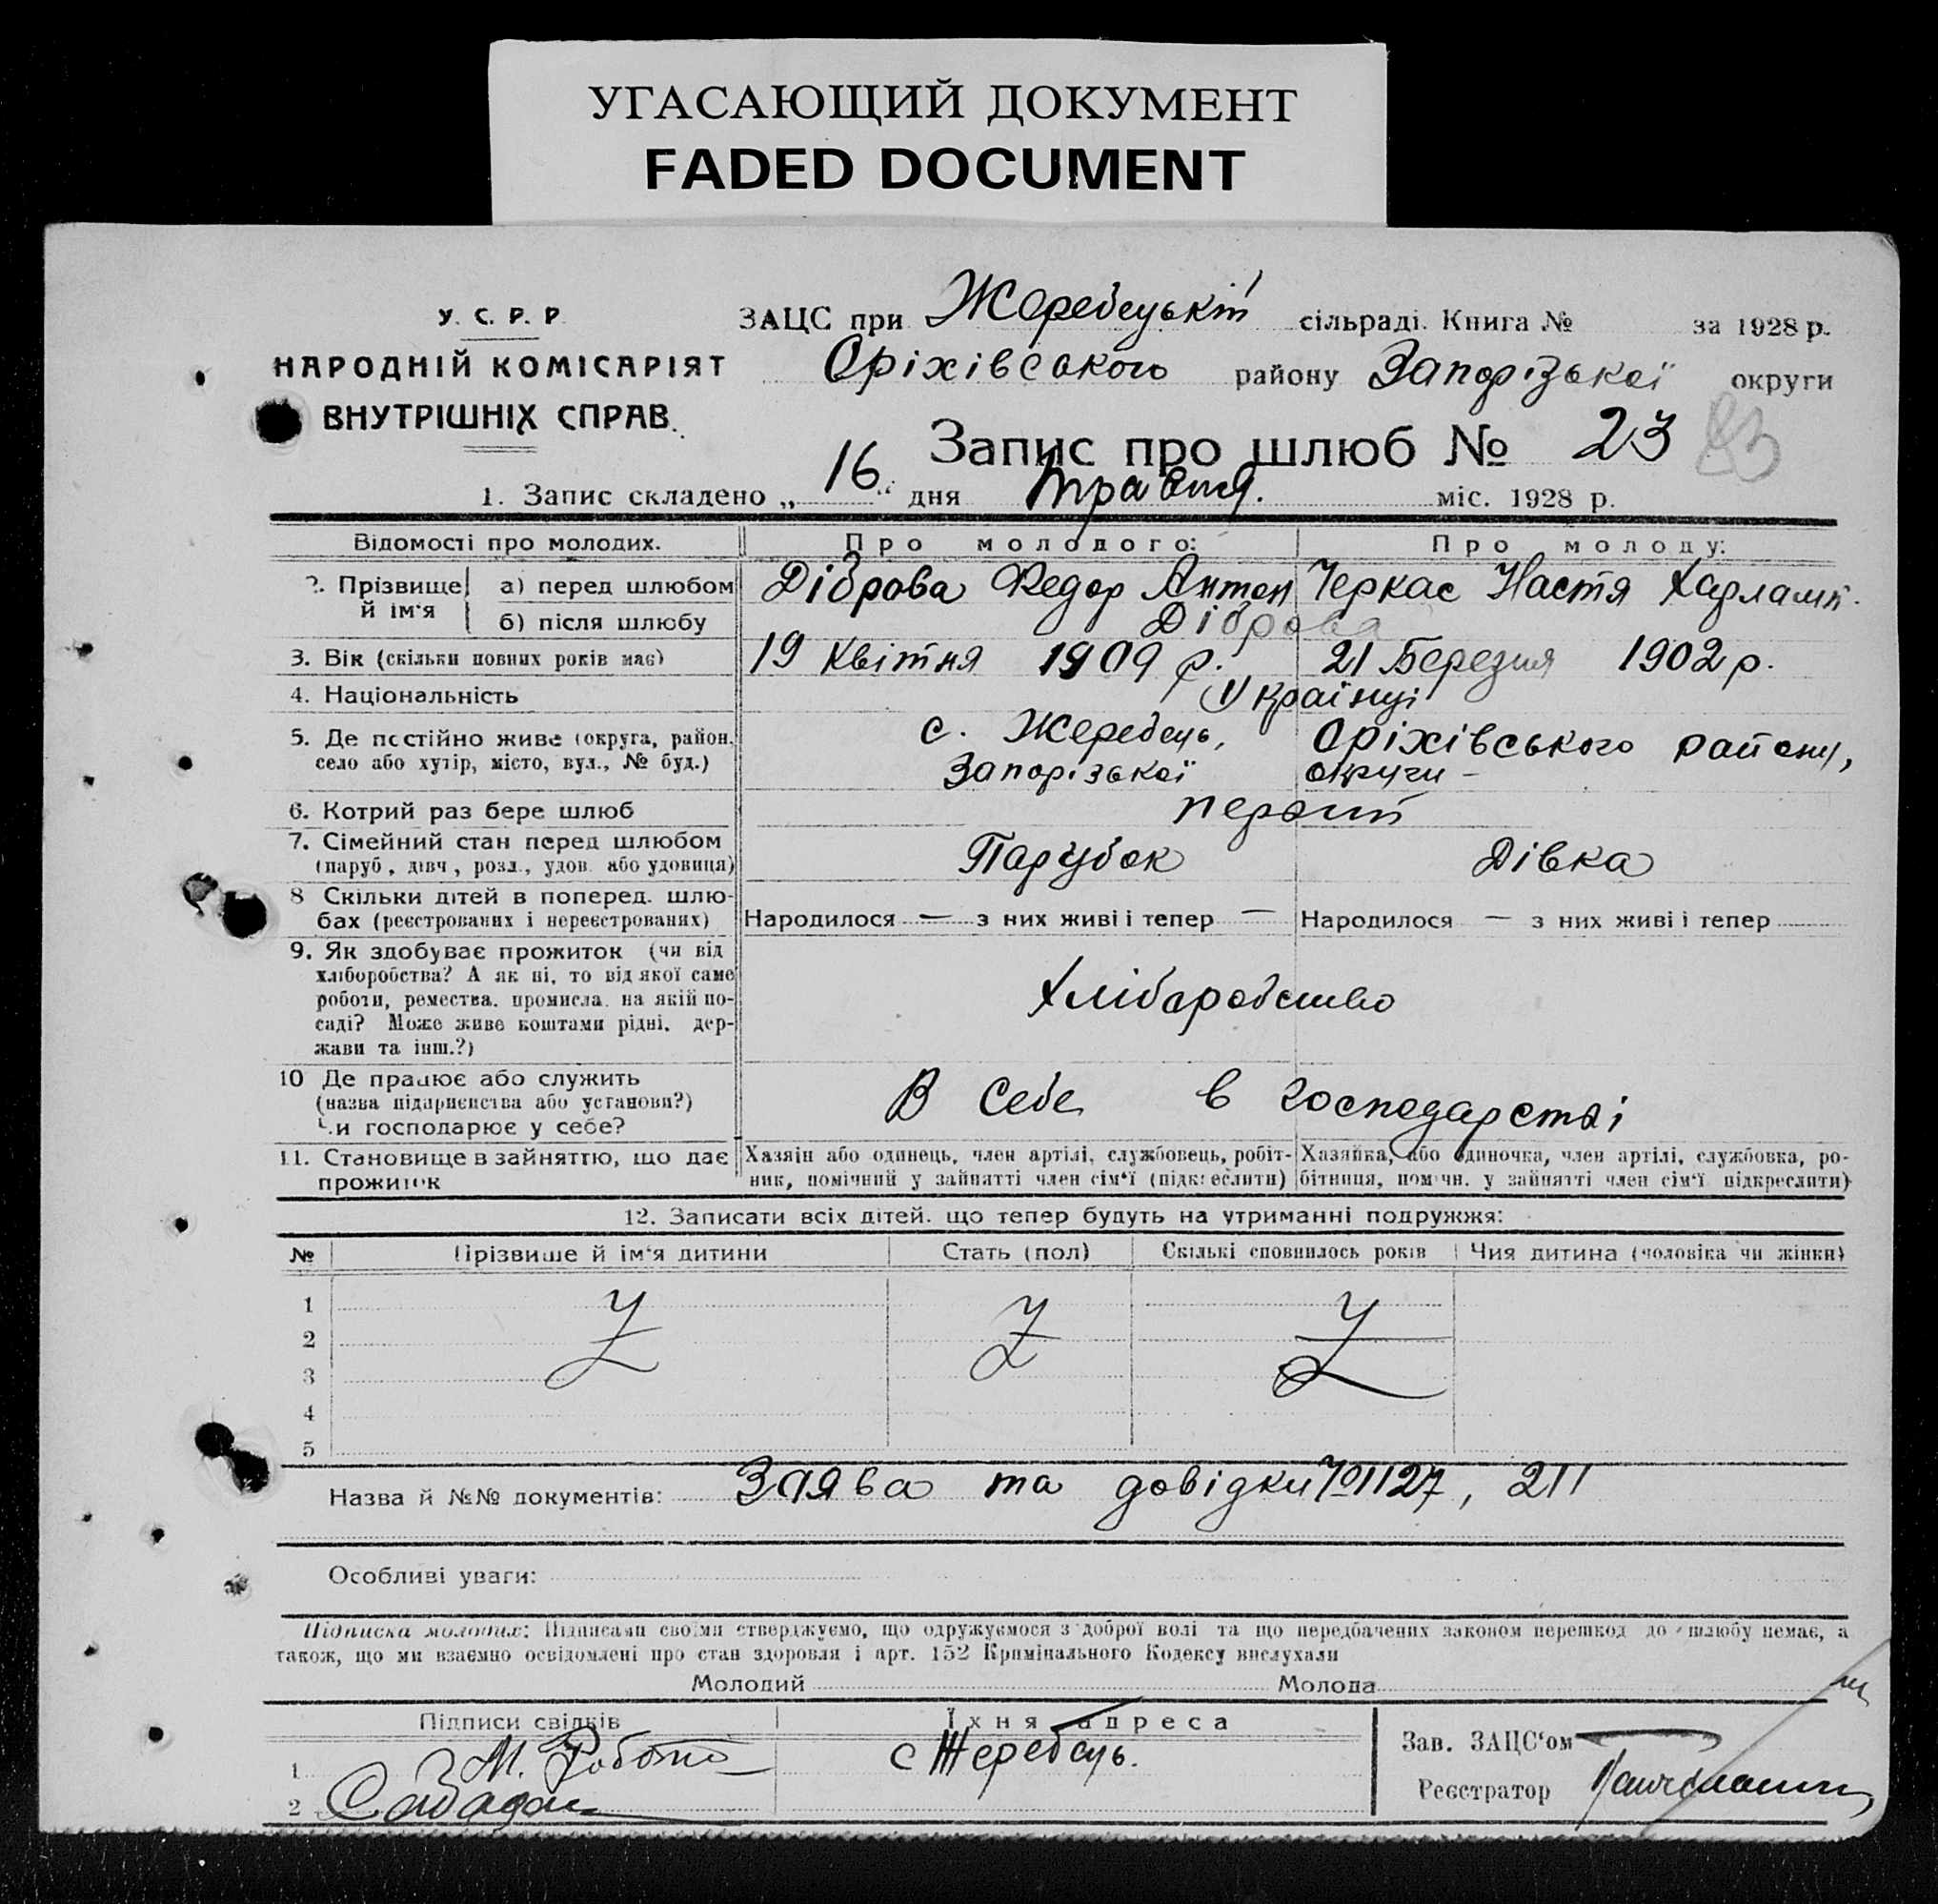 УГАСАЮЩИЙ ДОКУМЕНТ
FADED DOCUMENT
У. С. Р. Р
НАРОДНІЙ КОМІСАРІЯТ
ВНУТРІШНІХ СПРАВ.
ЗАЦС при Жеребецькій сільраді. Книга № за 1928 р.
Оріхівського району Запорізької округи
Запис про шлюб № 23 23
1. Запис складено „ 16 “ дня травня. міс. 1928 р.
Відомості про молодих. Про молодого: Про молоду:
2. Прізвище й ім'я а) перед шлюбом Діброва Федор Антон Черкас Настя Харламп.
б) після шлюбу Діброва
3. Вік (скільки повних років має) 19 Квітня 1909 р. 21 Березня 1902 р.
4. Національність Українці
5. Де постійно живе (округа, район, с. Жеребець, Оріхівського району,
село або хутір, місто, вул., № буд.) Запорізької округи –
6. Котрий раз бере шлюб первий
7. Сімейний стан перед шлюбом Парубок Дівка
(паруб., дівч., розл., удов. або удовиця)
8 Скільки дітей в поперед. шлю-
бах (реєстрованих і нереєстрованих) Народилося — з них живі і тепер — Народилося — з них живі і тепер
9. Як здобуває прожиток (чи від
хліборобства? А як ні, то від якої саме
роботи, ремества, промисла, на якій по- Хліборобство
саді? Може живе коштами рідні, дер-
жави та інш.?)
10 Де працює або служить
(назва підприємства або установи?) В себе в господарстві
Чи господарює у себе?
11. Становище в зайняттю, що дає Хазяін або одинець, член артілі, службовець, робіт- Хазяйка, або одиночка, член артілі, службовка, ро-
прожиток ник, помічний у зайнятті член сім'ї (підкреслити) бітниця, помічн. у зайнятті член сім'ї підкреслити)
12. Записати всіх дітей, що тепер будуть на утриманні подружжя:
№ Прізвище й ім'я дитини Стать (пол) Скількі сповнилось років Чия дитина (чоловіка чи жінки)
1
2
3
4
5
Назва й №№ документів: Заява та довідки № 1127, 211
Особливі уваги:
Підписка молодих: Підписами своїми стверджуємо, що одружуємося з доброї волі та що передбачених законом перешкод до шлюбу немає, а
також, що ми взаємно освідомлені про стан здоровля і арт. 152 Кримінального Кодексу вислухали
Молодий Молода
Підписи свідків Їхня адреса
Зав. ЗАЦС'ом
1 М. с Жеребець.
Реєстратор
2